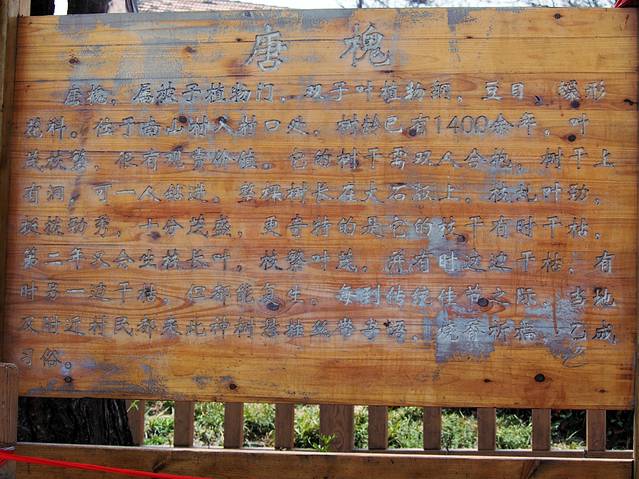 唐槐
唐槐，属被子植物门，双子叶植物纲，豆目，蝶形
花科。位于南山村入村口处，树龄已有1400余年，叶
茂枝繁，很有观赏价值。它的树干需双人合抱，树干上
有洞，可一人钻进。整棵树长在大石板上，枝乱叶劲，
枝劲秀，十分茂盛，更奇特的是它的枝干有时干枯，
第二年又会生枝长叶，枝繁叶茂，并有时这边干枯，有
时另一边干枯，但都能复生。每到传统佳节之际，当地
及附近村民都来此神树悬挂丝带，烧香祈福，已成
习俗。